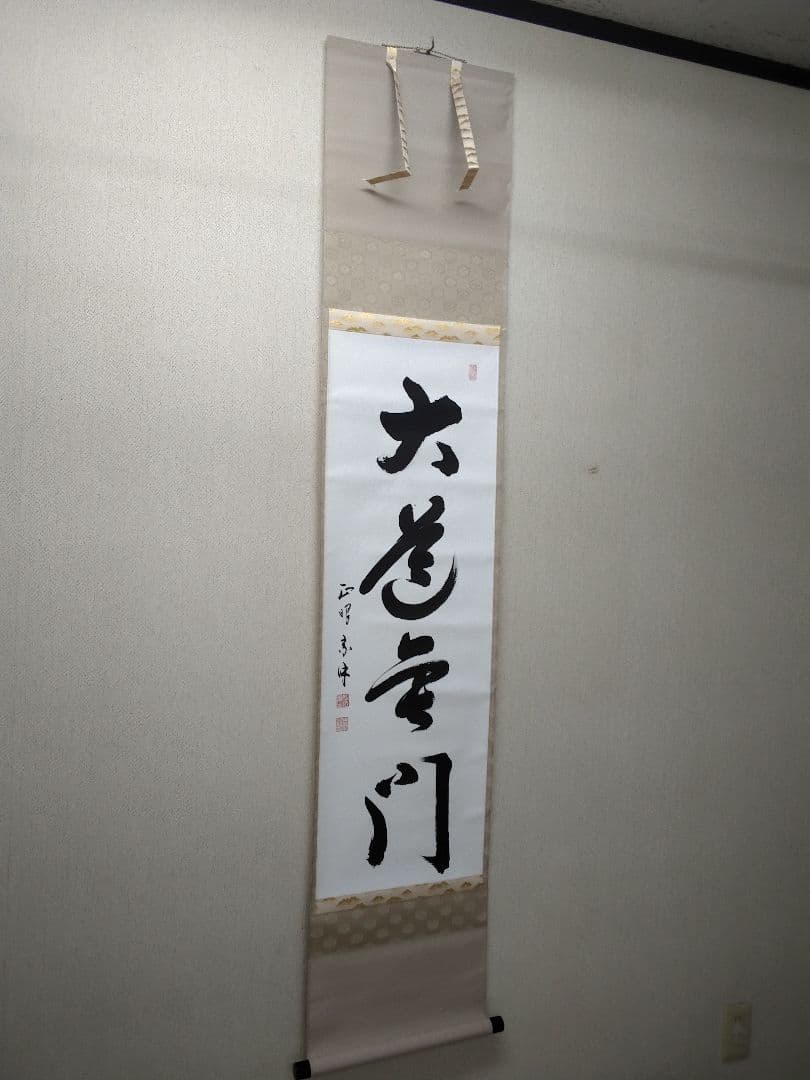 大道無門
正明